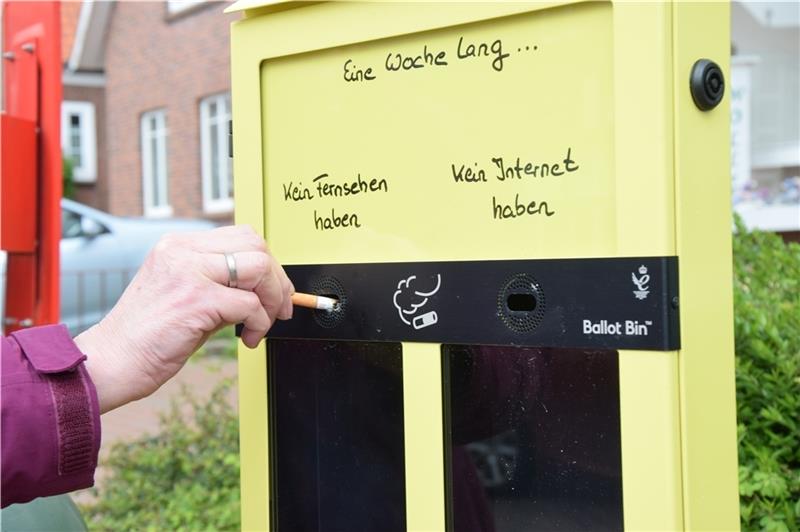 Eine Woche lang ...
Kein Fernsehen
haben
Kein Internet
haben
Ballot Bin™